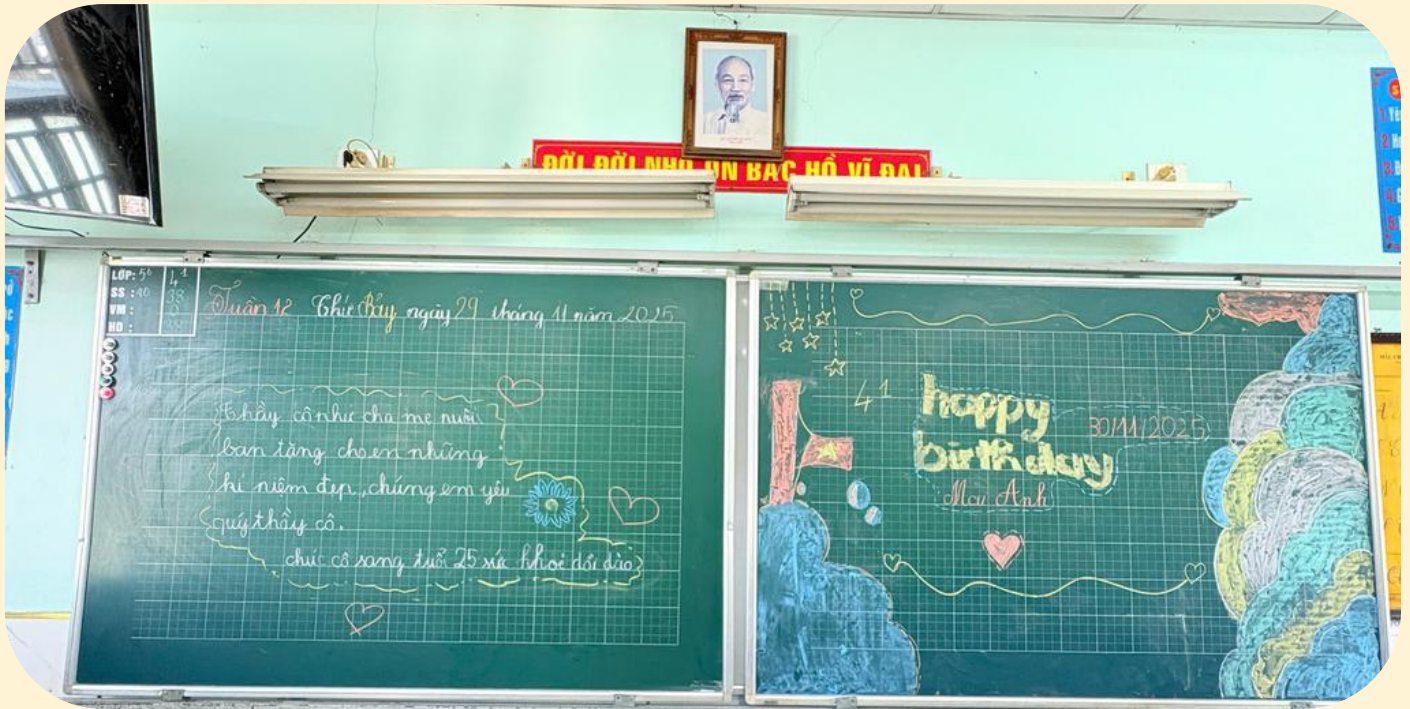 ĐỜI ĐỜI NHỚ ƠN BÁC HỒ VĨ ĐẠI
LỚP: 5⁶ 4¹
SS : 40 38
VM : 0
HD : 38
Tuần 12 Thứ Bảy ngày 29 tháng 11 năm 2025
Thầy cô như cha mẹ nuôi
ban tặng cho em những
kỉ niệm đẹp, chúng em yêu
quý thầy cô.
chúc cô sang tuổi 25 sức khoẻ dồi dào
4¹
happy
birthday
30/11/2025
Mai Anh